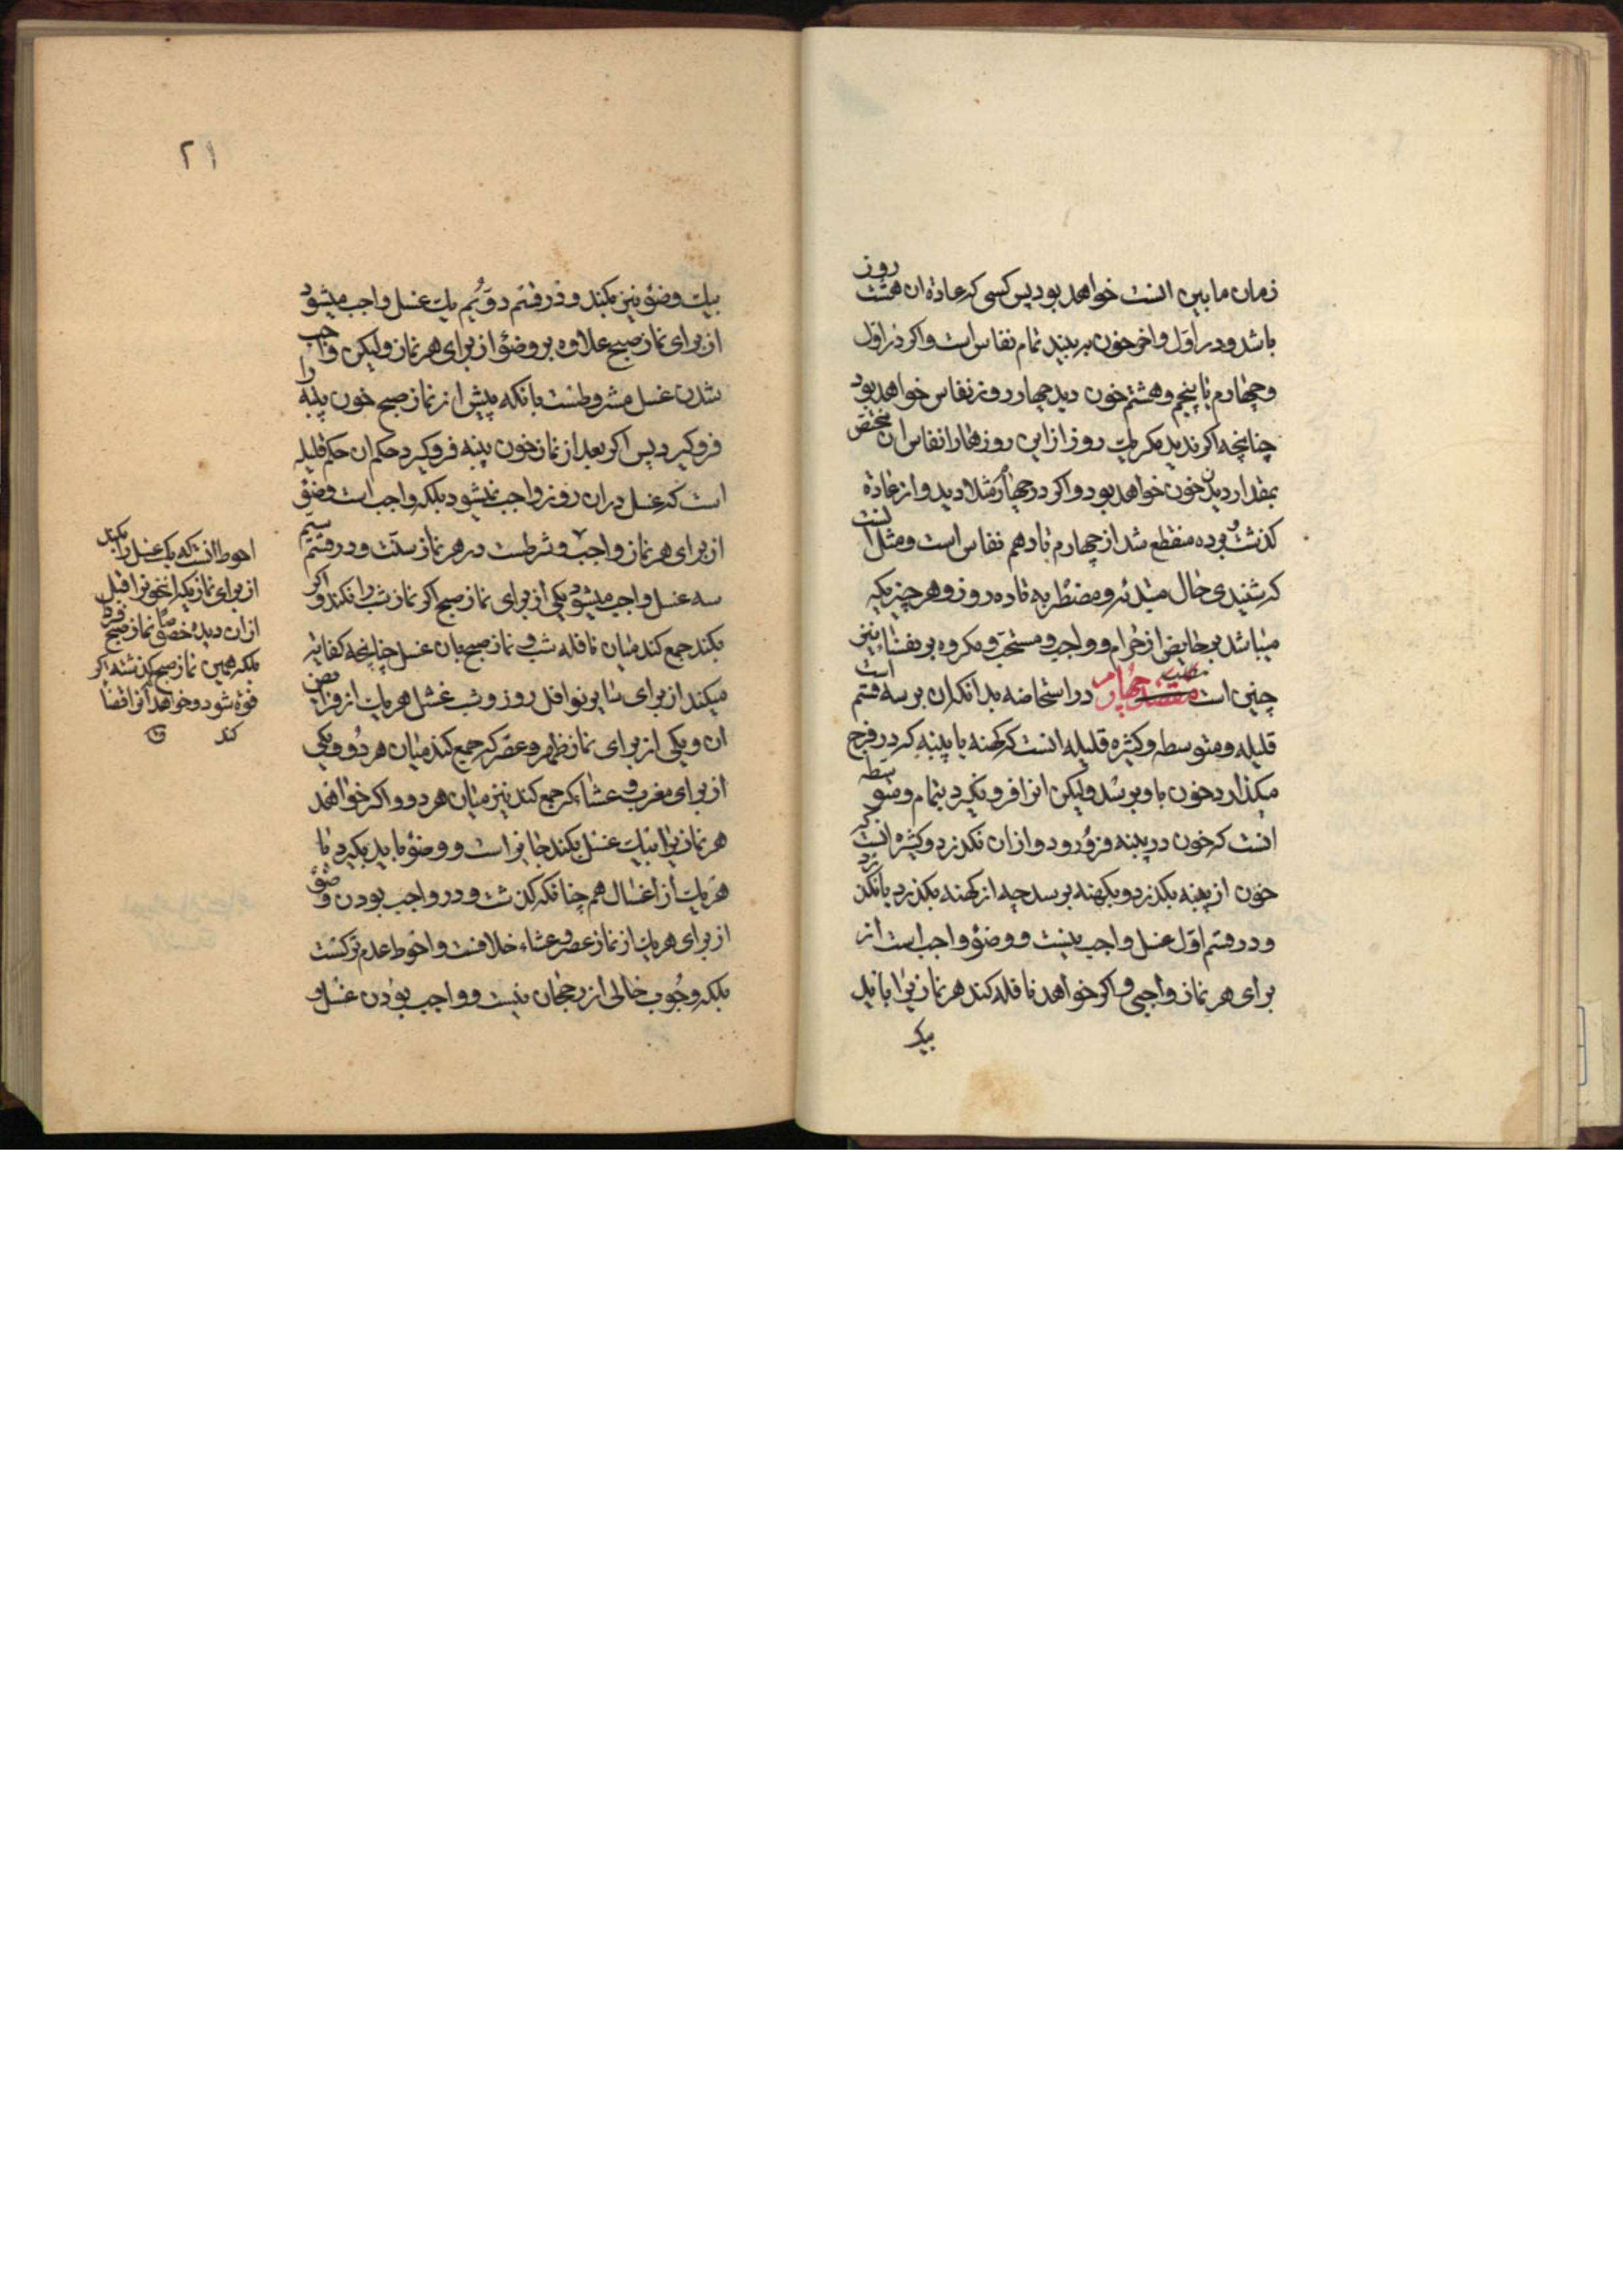 زمان مابین انست خواهد بود پس کسی که عادة ان هشت روز
باشد و در اول و اخر خون به بیند تمام نفاس است و اکر در اول
و چهارم تا پنجم و هشتم خون دید چهار روز نفاس خواهد بود
چنانچه اکر ندید مکر یک روز از این روزها را نفاس ان مختص
بمقدار دیدن خون خواهد بود و اکر در چهارم مثلا دید و از عادة
کذشت و بوده منقطع شد از چهارم تا دهم نفاس است و مثل انست
که شنیدی حال مبتدئه و مضطربه تا ده روز و هر چیزیکه
میباشد بر حایض از حرام و واجب و مستحب و مکروه بر نفساء نیز
چنین است مقصد مطلب چهارم در استحاضه بدانکه ان بر سه قسم است
قلیله و متوسطه و کثیره قلیله انست که کهنه یا پنبه که در فرج
میکذارد خون باو برسد ولیکن انرا فرو نکیرد بتمام و متوسطه
انست که خون در پنبه فرو رود و از ان نکذرد و کثیره انست که
خون از پنبه بکذرد و بکهنه برسد چه از کهنه بکذرد یا نکذرد
و در قسم اول غسل واجب نیست و وضوء واجب است از
برای هر نماز واجبی و اکر خواهد نافله کند هر نمازیرا باید
بیک
۲۱
بیک وضوء نیز بکند و در قسم دویم یک غسل واجب میشود
از برای نماز صبح علاوه بر وضوء از برای هر نماز ولیکن واجب
شدن غسل مشروطست بانکه پیش از نماز صبح خون پنبه را
فروکیرد پس اکر بعد از نماز خون پنبه فروکیرد حکم ان حکم قلیله
است که غسل در ان روز واجب نمیشود بلکه واجب است وضوء
از برای هر نماز واجب و شرطست در هر نماز سنت و در قسم سیم
سه غسل واجب میشود یکی از برای نماز صبح اکر نماز شب را نکند و اکر
بکند جمع کند میان نافله شب و نماز صبح بان غسل چنانچه کفایة
میکند از برای سایر نوافل روز و شب غسل هر یک از فرایض
ان و یکی از برای نماز ظهر و عصر که جمع کند میان هر دو و یکی
از برای مغرب و عشاء که جمع کند نیز میان هر دو و اکر خواهد
هر نمازیرا بیک غسل بکند جایز است و وضوء باید بکیرد با
هر یک از اغسال هم چنانکه کذشت و در واجب بودن وضوء
از برای هر یک از نماز عصر و عشاء خلافست و احوط عدم ترکست
بلکه وجوب خالی از رجحان نیست و واجب بودن غسل و
احوط انست که یک غسل را بکند
از برای نمازیکه این خونرا قبل
از ان دیده خصوصا نماز صبح فردا
بلکه همین نماز صبح کذشته اکر
فوة شود و خواهد انرا قضا
کند